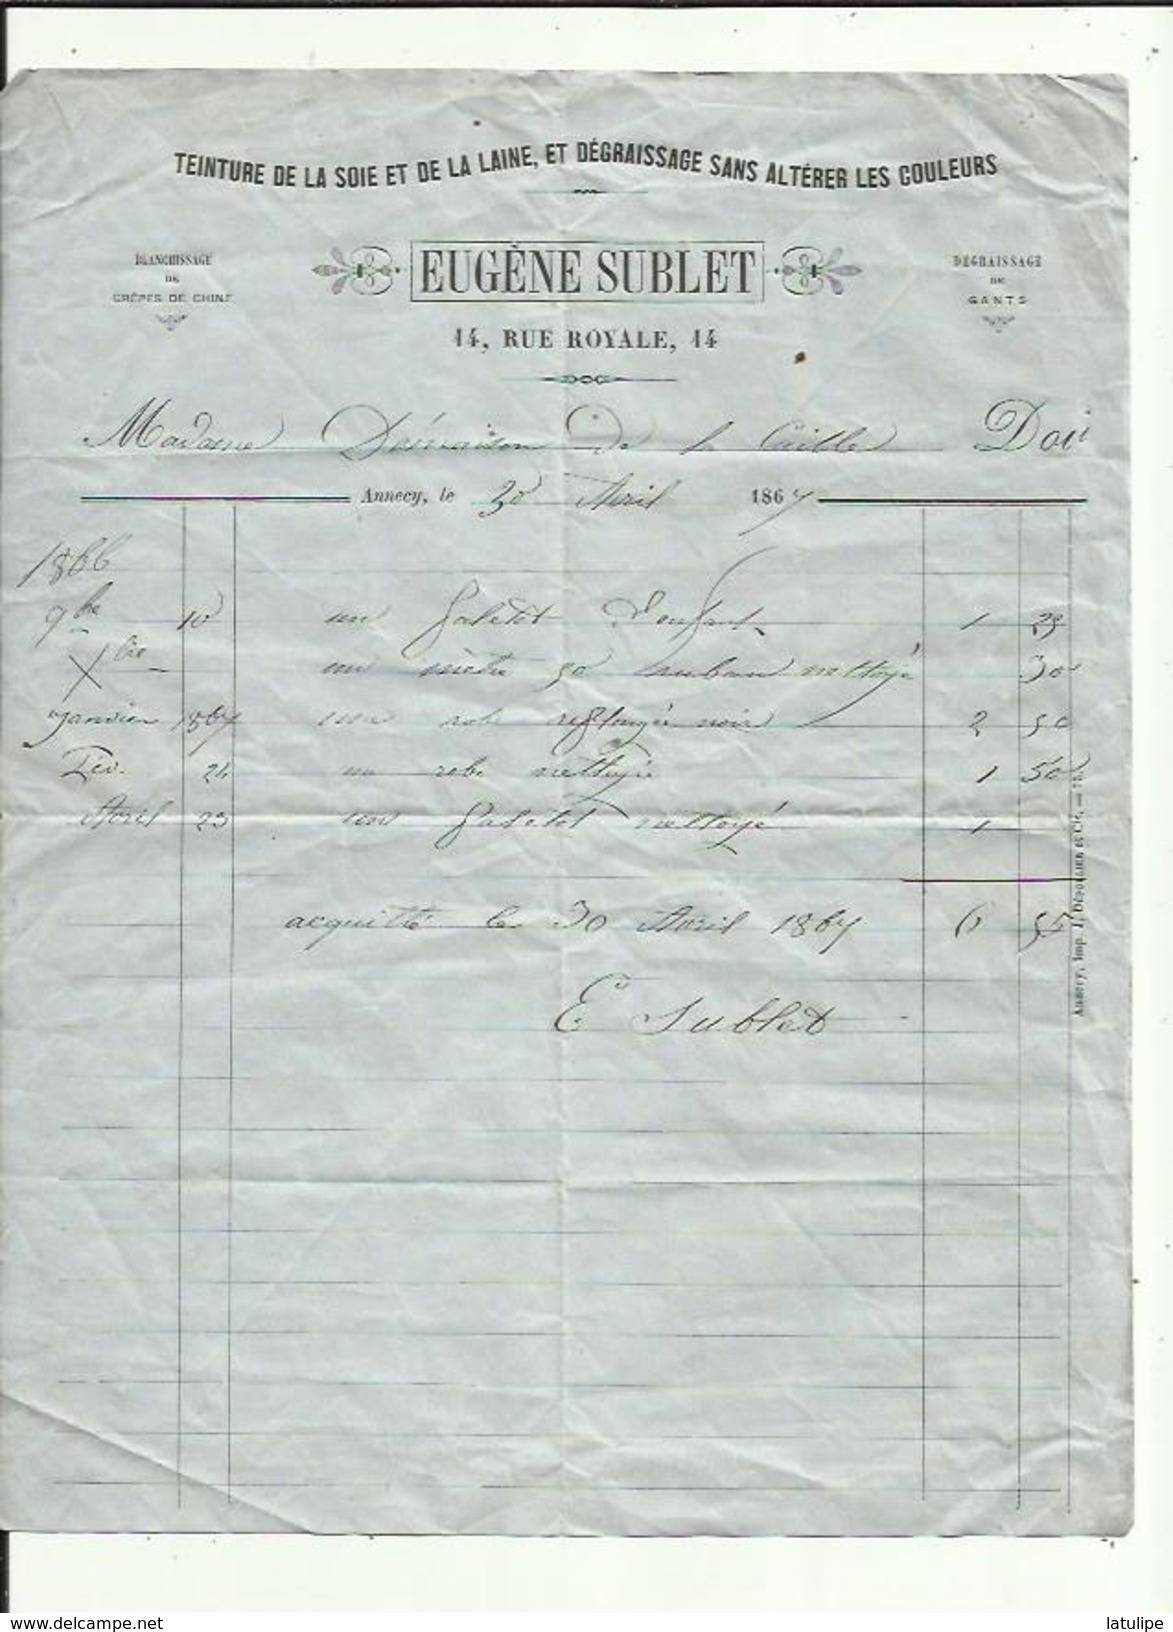 TEINTURE DE LA SOIE ET DE LA LAINE, ET DÉGRAISSAGE SANS ALTÉRER LES COULEURS
BLANCHISSAGE
DE
CRÊPES DE CHINE
EUGÈNE SUBLET
DÉGRAISSAGE
DE
GANTS
14, RUE ROYALE, 14
Madame De la Caille Doit
Annecy, le 30 Avril 1867
1866
9bre 10 un Paletot d'enfant 1 25
Xbre un mètre 50 ruban nettoyé 30
Janvier 1867 une robe noir 2 50
Fev. 24 une robe nettoyé 1 50
Avril 23 un Paletot nettoyé 1
acquitté le 30 Avril 1867 6 55
E Sublet
Annecy, Imp. J. DÉPOLLIER et Cie. — 75.
www.delcampe.net
latulipe